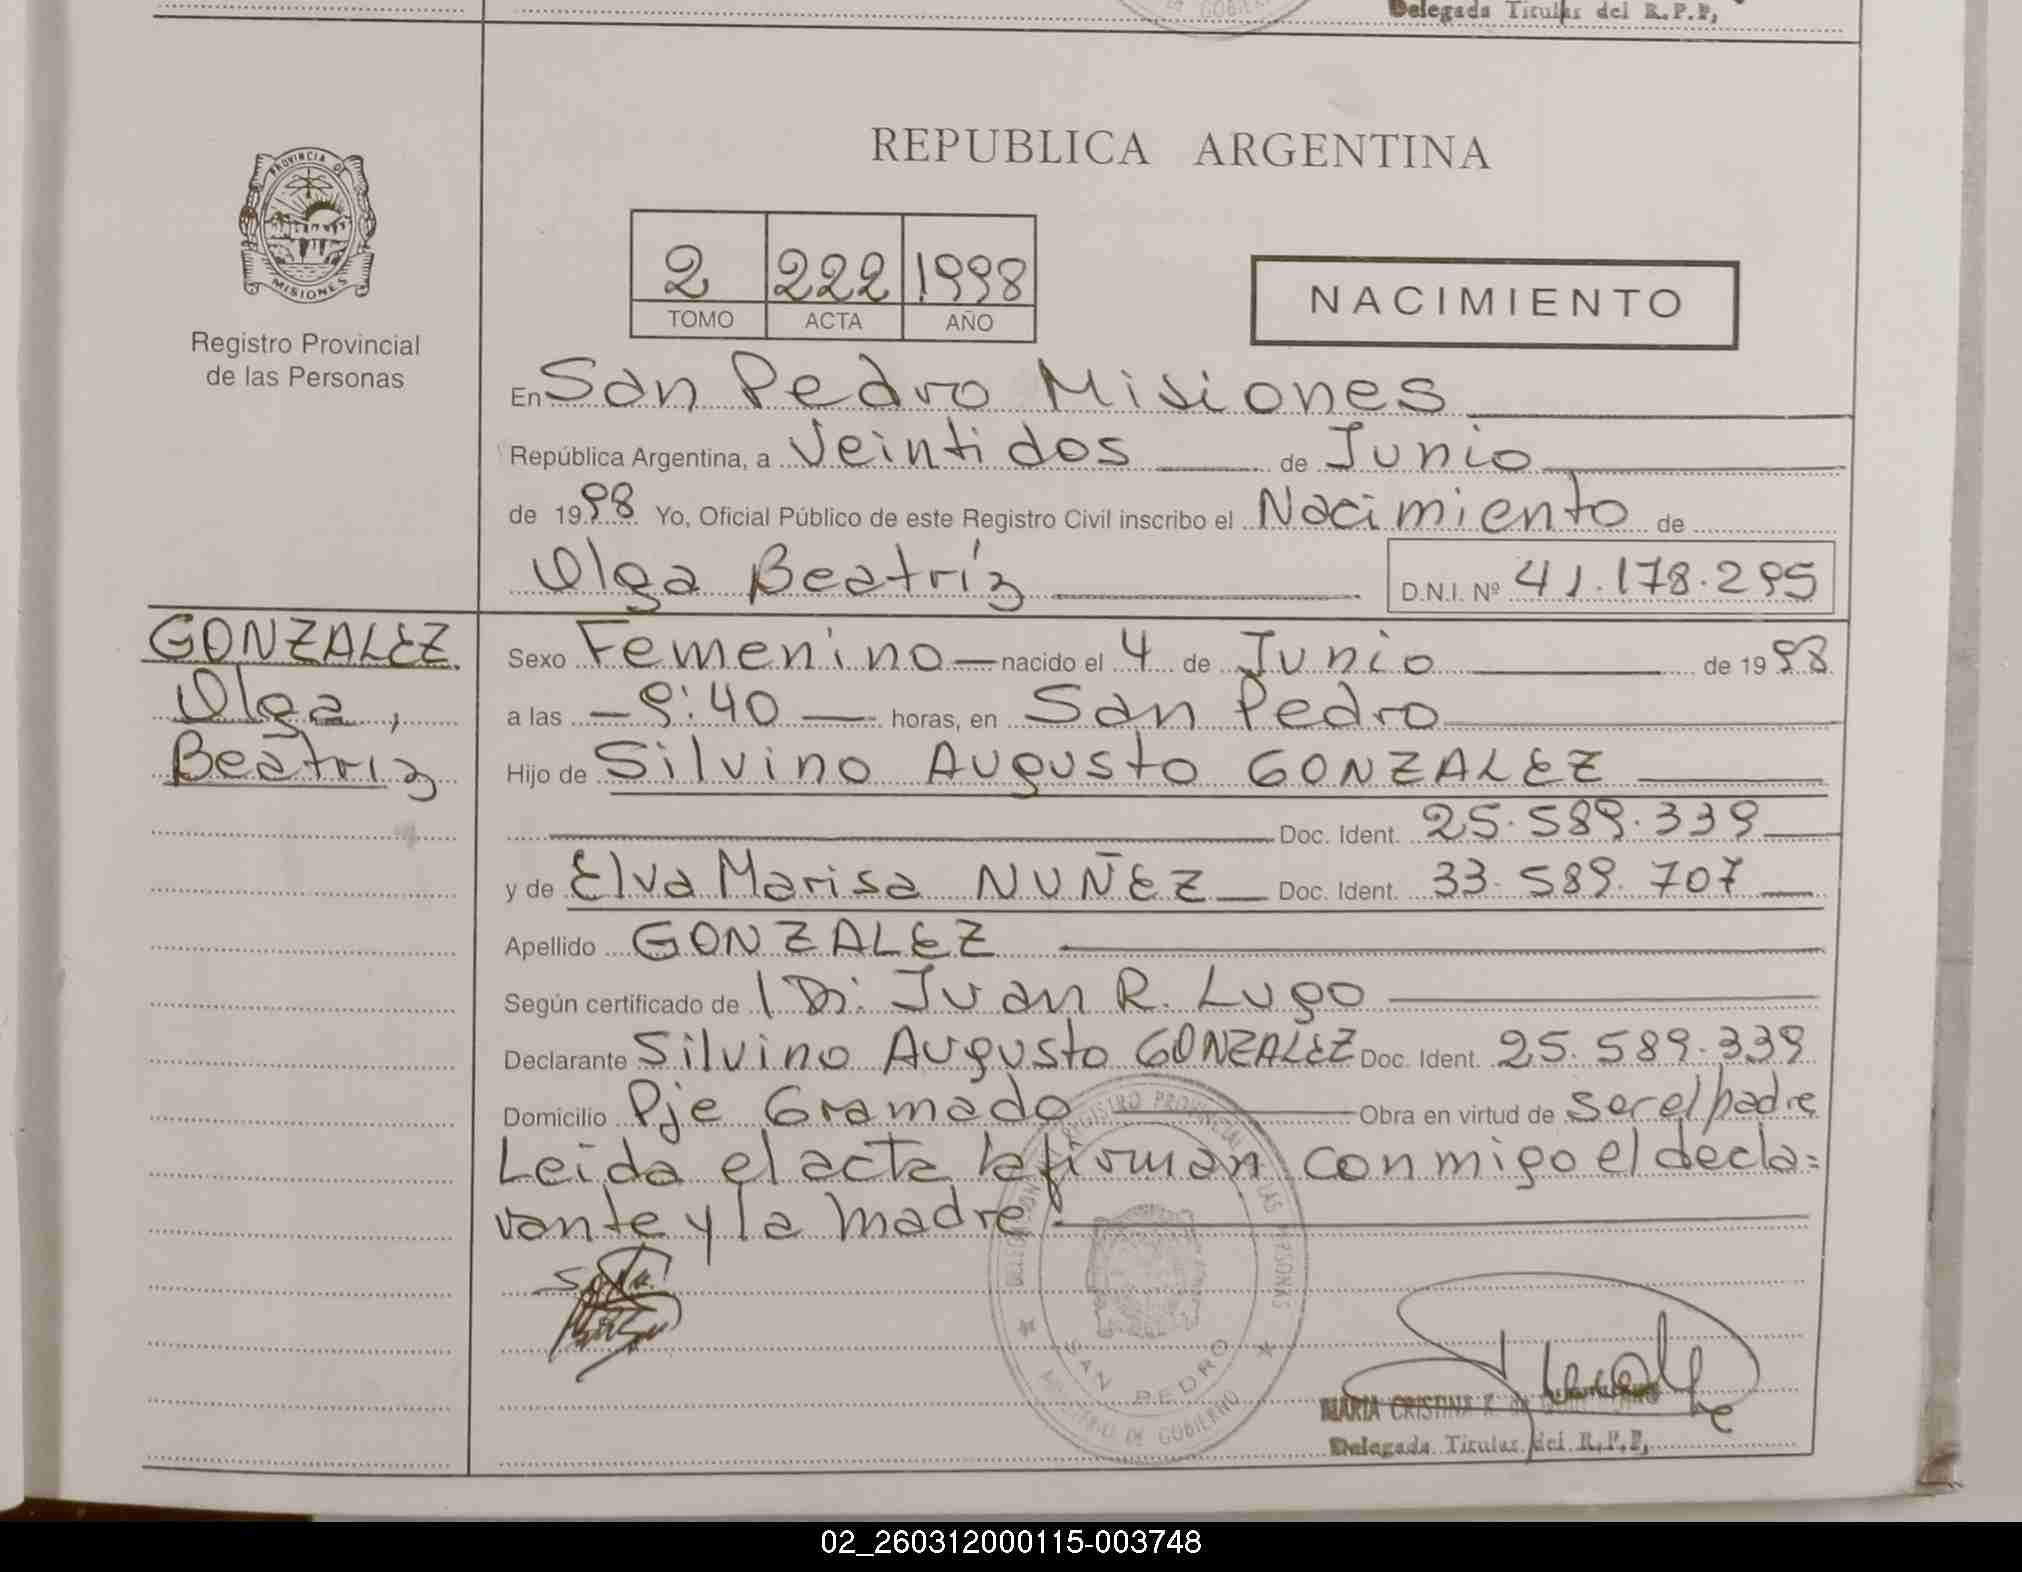 Delegada Titular del R.P.P.
DE GOBIER
REPUBLICA ARGENTINA
PROVINCIA DE
MISIONES
Registro Provincial
de las Personas
2 222 1998
TOMO ACTA AÑO
NACIMIENTO
En San Pedro Misiones
República Argentina, a Veintidos de Junio
de 1998 Yo, Oficial Público de este Registro Civil inscribo el Nacimiento de
Olga Beatríz D.N.I. Nº 41.178.295
GONZALEZ
Olga,
Beatriz
Sexo Femenino nacido el 4 de Junio de 1998
a las 9:40 horas, en San Pedro
Hijo de Silvino Augusto GONZALEZ
Doc. Ident. 25.589.339
y de Elva Marisa NUÑEZ Doc. Ident. 33.589.707
Apellido GONZALEZ
Según certificado de Juan R. Lugo
Declarante Silvino Augusto GONZALEZ Doc. Ident. 25.589.339
Domicilio Pje Gramado Obra en virtud de ser el padre
Leida el acta la firman conmigo el decla=
rante y la madre.
REGISTRO PROVINCIAL DE LAS PERSONAS
SAN PEDRO
MINISTERIO DE GOBIERNO
MARIA CRISTINA R.
Delegada Titular del R.P.P.
02_260312000115-003748